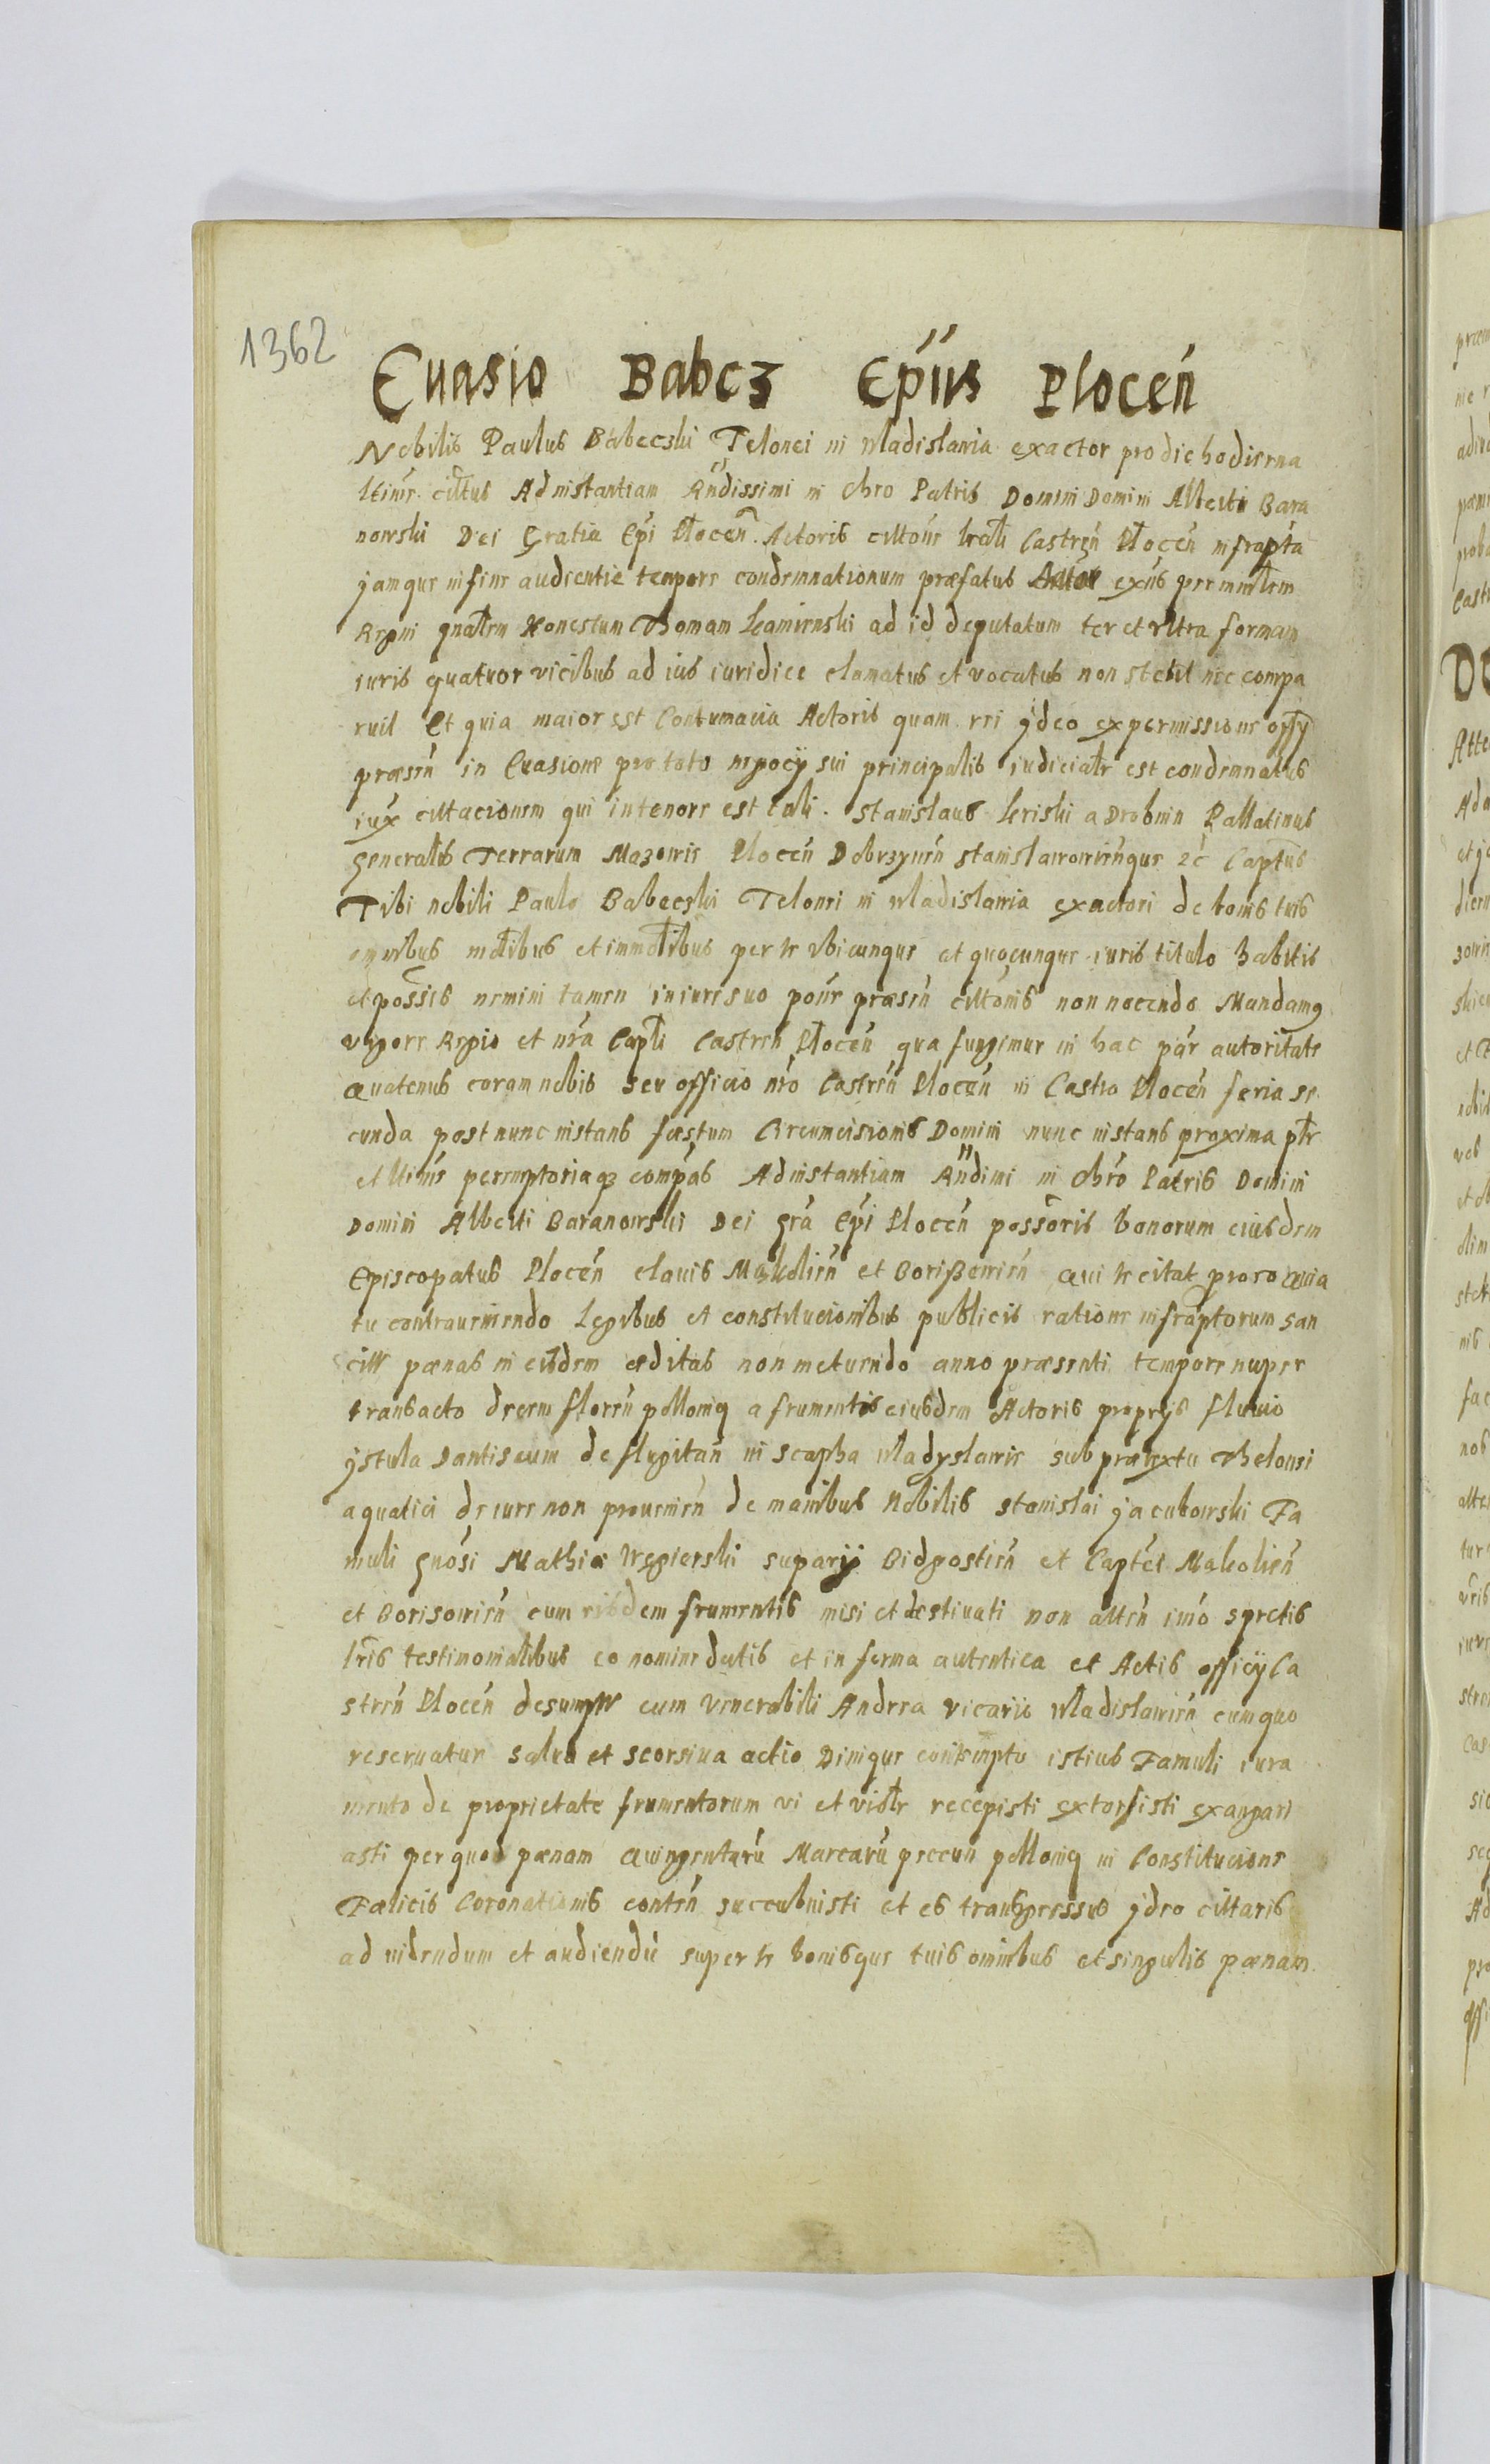 1362
Euasio Babcz Epīus Plocen̄
Nobilis Paulus Babeczki Telonei in Wladislawia exactor pro die hodierna
cittus Ad instantiam Rndissimi in chro Patris Domini Domini Alberti Bara
nowski Dei Gratia Epi Plocen Actoris cittone Castren Plocen infrapta
jamque in fine audientie tempore condemnationum præfatus exiis per mīnlem
Regni gnalem Honestum Thomam ad id deputatum ter et vltra formam
iuris quatuor vicibus ad ius iuridice clamatus et vocatus non stetit nec compa
ruit Et quia maior est Contumacia Actoris quam rei ydeo ex permissione offy
præsen in Euasione pro toto negocy sui principalis iudicialr est condemnatus
iux cittacionem qui in tenore est tali. Stanislaus Kriski a Drobnin Pallatinus
Generalis Terrarum Mazowie Plocen Dobrzynen 2c Captus
Tibi nobili Paulo Babeczki Telonei in Wladislawia exactori de bonis tuis
omnibus motibus et immotibus per te vbicunque et quocunque iuris titulo habitis
et possis nemini tamen in iure suo poiir præsen cittonis non nocendo Mandamq
vigore Regio et nra Capti Castren Plocen qua fungimur in hac par autoritate
Quatenus coram nobis seu officio nro Castren Plocen in Castro Plocen feria se
cunda post nunc instans festum Circumcisionis Domini nunc instans proxima ptr
et peremptoriaq3 compas Ad instantiam Rndimi in chro Patris Domini
Domini Alberti Baranowski Dei gra Epi Plocen possoris bonorum eiusdem
Episcopatus Plocen clauis et Borißewien Qui te citat pro eo Quia
tu contraueniendo Legibus et constitucionibus publicis ratione infraptorum san
citt pænas in eisdem æditas non metuendo anno præsenti tempore nuper
transacto decem floren polloniq a frumentis eiusdem Actoris proprijs fluuio
ystula Dantiscum defluitan in scapha Wladyslawie sub prætextu Thelonei
aquatici de iure non prouenien de manibus Nobilis Stanislai jacubowski Fa
muli gnosi Mathiæ Wegierski suparij Bidgostien et Captei
et Borisowien cum eisdem frumentis misi et destinati non atten imo spretis
lris testimonialibus eo nomine datis et in forma autentica et Actis officij Ca
stren Plocen desumptt cum Venerabili Andrea vicario Wladislawien cum quo
reseruatur salua et seorsiua actio Denique contempto istius Famuli iura
mento de proprietate frumentorum vi et violtr recepisti extorsisti exangari
asti per quod pænam Quingentaru Marcaru pecun polloniq in Constitucione
Fælicis Coronationis conten succubuisti et es transgressus ydeo cittaris
ad uidendum et audiendu super te bonisque tuis omnibus et singulis pænam